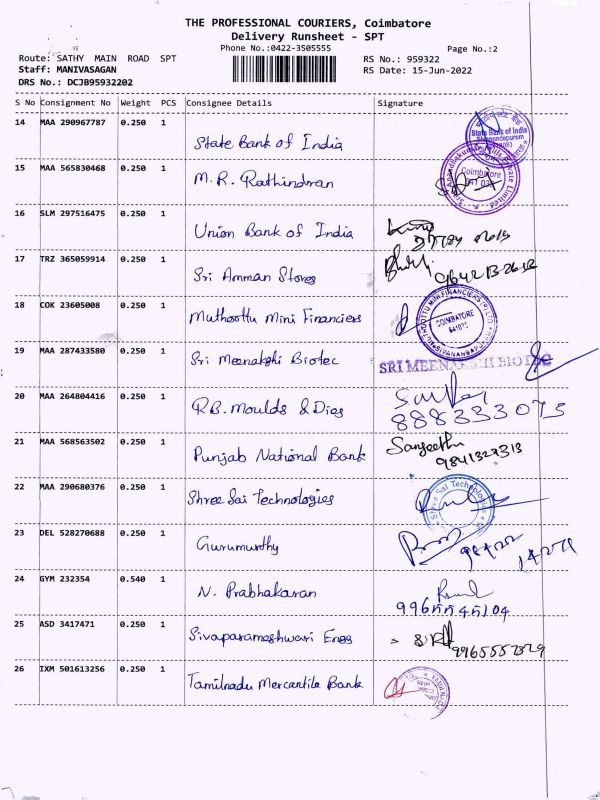 THE PROFESSIONAL COURIERS, Coimbatore
Delivery Runsheet - SPT
Phone No.:0422-3505555
Page No.:2
Route: SATHY MAIN ROAD SPT
RS No.: 959322
Staff: MANIVASAGAN
RS Date: 15-Jun-2022
DRS No.: DCJB95932202
S No Consignment No Weight PCS Consignee Details Signature
14 MAA 290967787 0.250 1 State Bank of India
State Bank of India
15 MAA 565830468 0.250 1 M.R. Rathindran
Coimbatore
16 SLM 297516475 0.250 1 Union Bank of India
17 TRZ 365059914 0.250 1 Sri Amman Stores
18 COK 23605008 0.250 1 Muthoottu Mini Financiers
MUTHOOTTU MINI FINANCIERS (P) LTD
COIMBATORE
19 MAA 287433580 0.250 1 Sri Meenakshi Biotec
SRI MEENAKSHI BIOTEC
20 MAA 264804416 0.250 1 R.B. Moulds & Dies
888333073
21 MAA 568563502 0.250 1 Punjab National Bank
Sangeetha
9841327313
22 MAA 290680376 0.250 1 Shree Sai Technologies
Shree Sai Technologies
23 DEL 528270688 0.250 1 Gurumurthy
24 GYM 232354 0.540 1 N. Prabhakaran
9965545104
25 ASD 3417471 0.250 1 Sivaparameshwari Engg
26 IXM 501613256 0.250 1 Tamilnadu Mercantile Bank